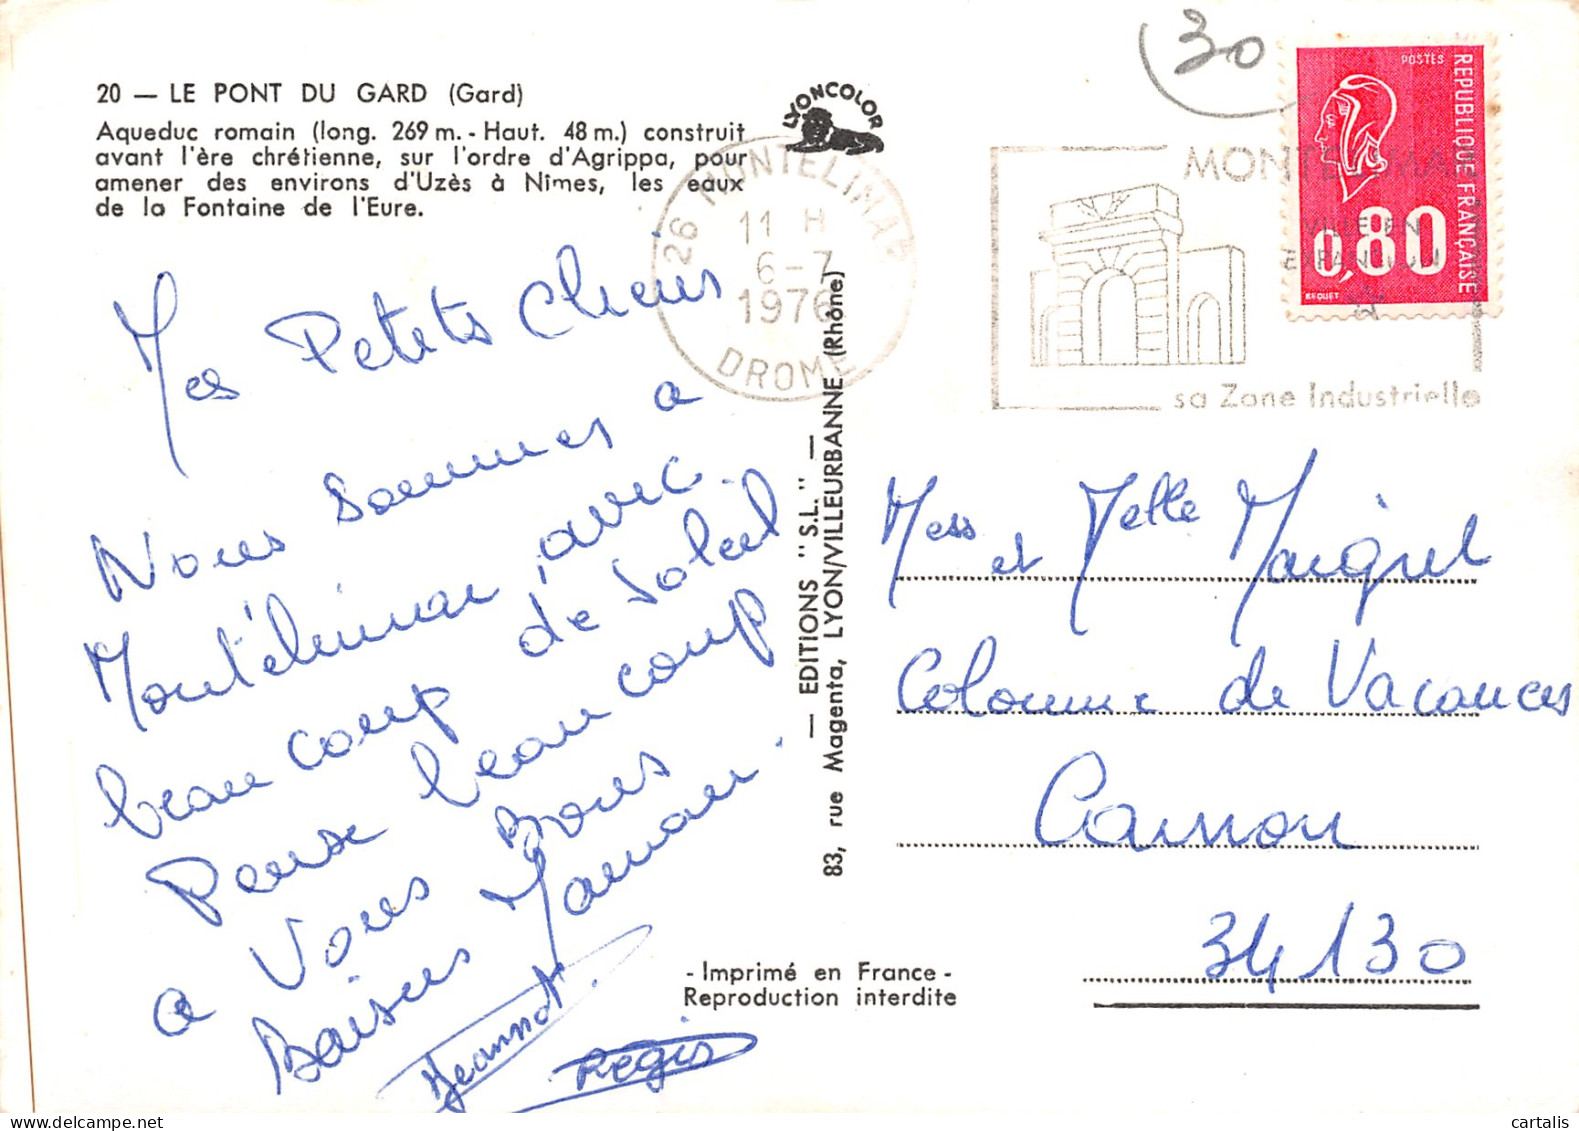 20 — LE PONT DU GARD (Gard)
Aqueduc romain (long. 269 m. - Haut. 48 m.) construit
avant l'ère chrétienne, sur l'ordre d'Agrippa, pour
amener des environs d'Uzès à Nîmes, les eaux
de la Fontaine de l'Eure.
LYONCOLOR
30
26 MONTELIMAR
11 H
6-7
1976
DROME
MONTELIMAR
VILLE EN
EXPANSION
sa Zone Industrielle
POSTES
REPUBLIQUE FRANÇAISE
0,80
BEQUET
Mes Petits Cheris
Nous sommes a
Montélimar, avec
beau coup de Soleil
Pense beau coup
a Vous Bons
Baisers Maman.
Jeannot.
Régis
— EDITIONS "S.L." —
83, rue Magenta, LYON/VILLEURBANNE (Rhône)
Mess et Melle Maigret
Colonnie de Vacances
Carnon
34130
- Imprimé en France -
Reproduction interdite
cartalis
delcampe.net